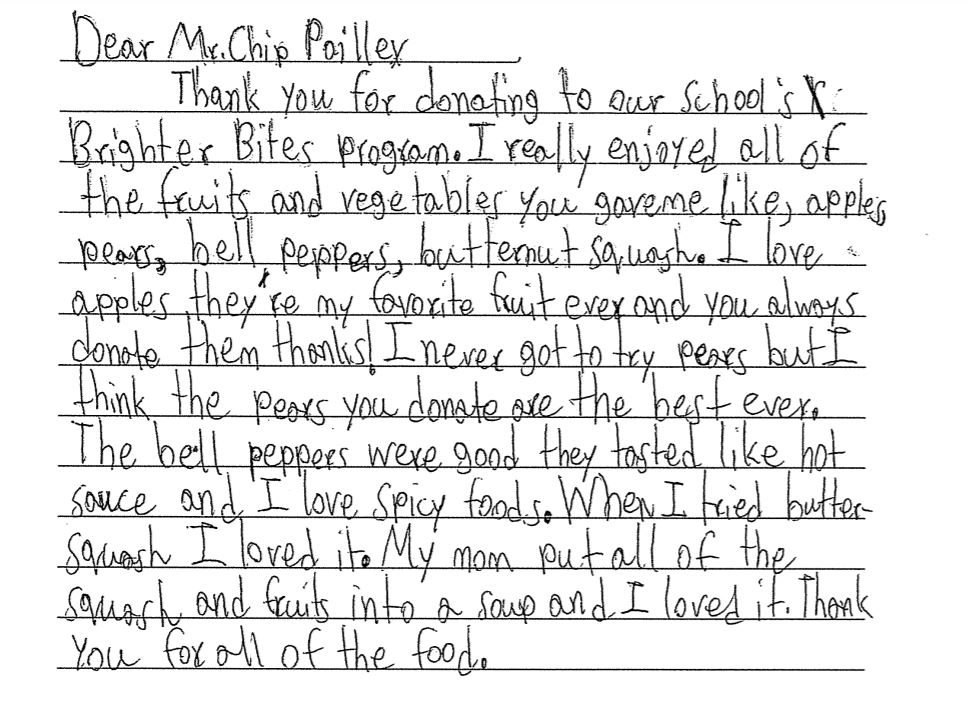 Dear Mr. Chip Pailley
Thank you for donating to our school's
Brighter Bites program. I really enjoyed all of
the fruits and vegetables you gave me like, apples,
pears, bell peppers, butternut squash. I love
apples they're my favorite fruit ever and you always
donate them thanks! I never got to try pears but I
think the pears you donate are the best ever.
The bell peppers were good they tasted like hot
sauce and I love spicy foods. When I tried butter-
squash I loved it. My mom put all of the
squash and fruits into a soup and I loved it. Thank
you for all of the food.